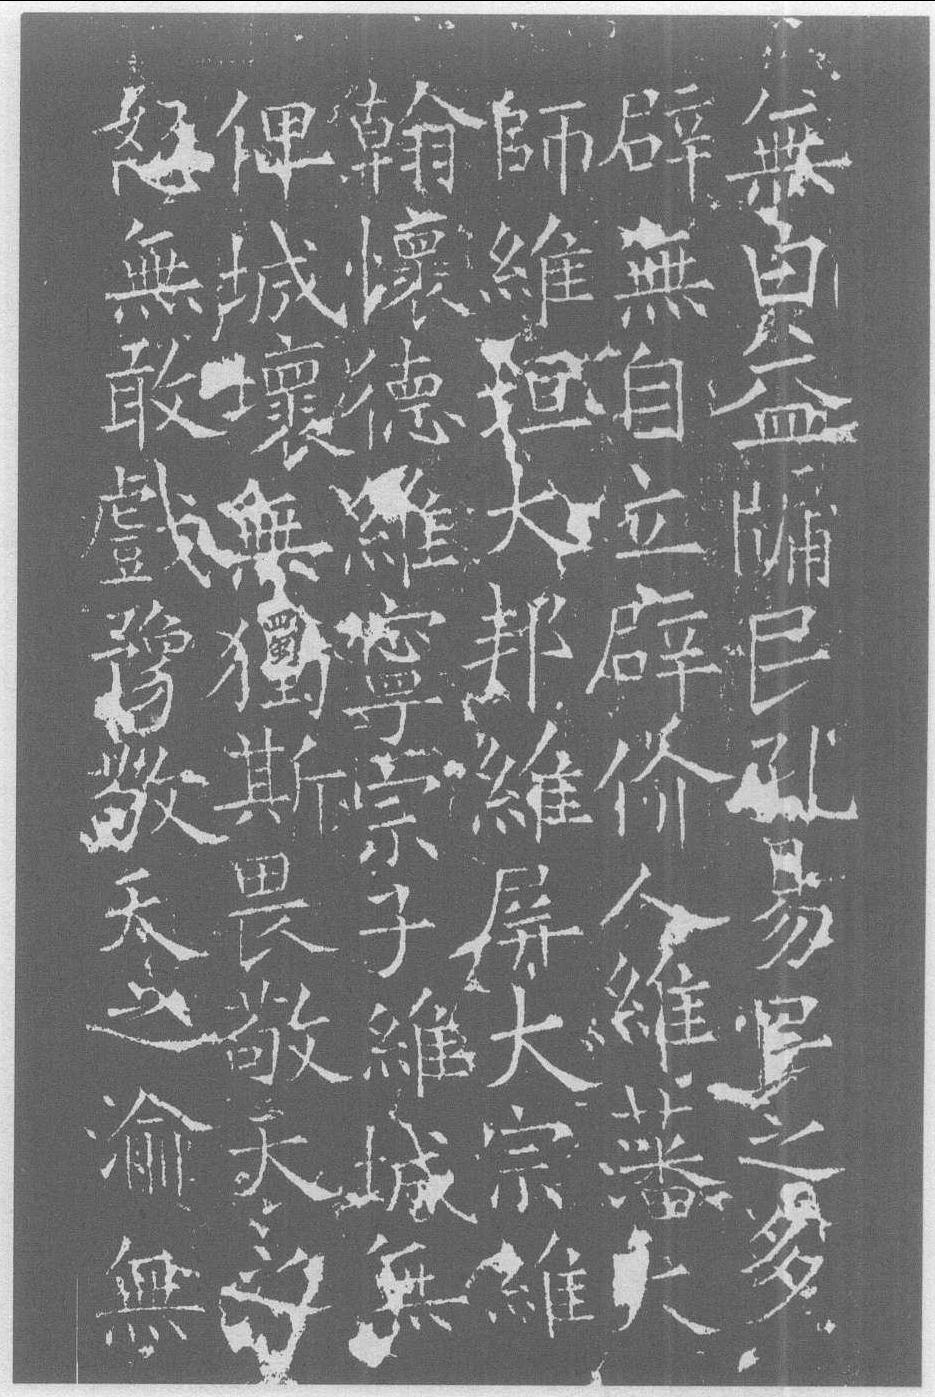 無曰益牖民孔易民之多
辟無自立辟价人維藩大
師維垣大邦維屏大宗維
翰懷德維寧宗子維城無
俾城壞無獨斯畏敬天之
怒無敢戲豫敬天之渝無